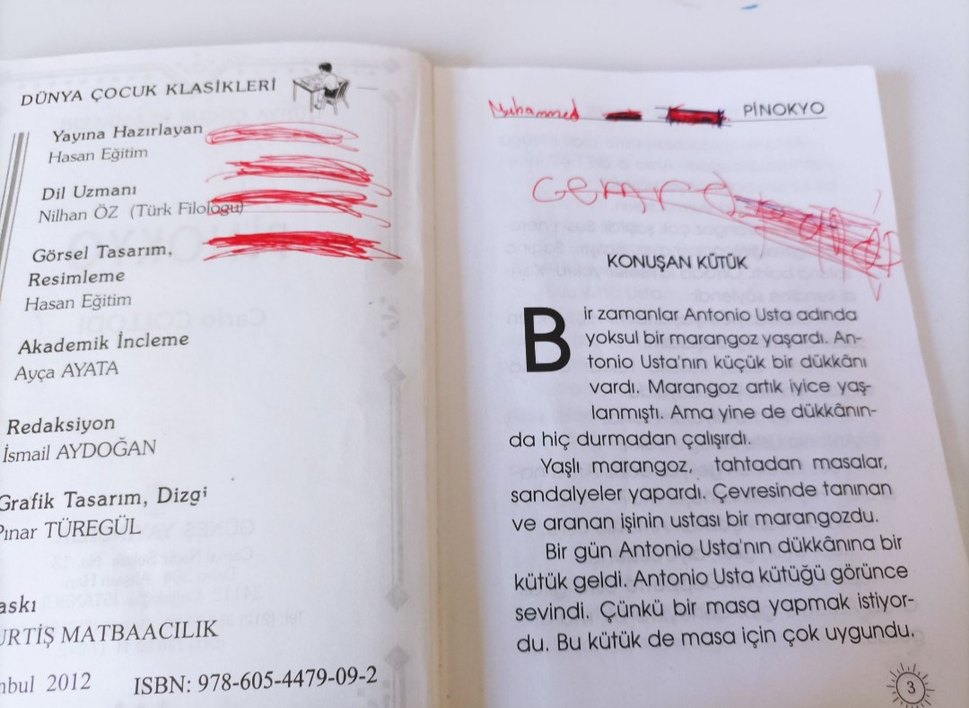 DÜNYA ÇOCUK KLASİKLERİ
Yayına Hazırlayan
Hasan Eğitim
Dil Uzmanı
Nilhan ÖZ (Türk Filoloğu)
Görsel Tasarım,
Resimleme
Hasan Eğitim
Akademik İncleme
Ayça AYATA
Redaksiyon
İsmail AYDOĞAN
Grafik Tasarım, Dizgi
Pınar TÜREGÜL
askı
URTİŞ MATBAACILIK
nbul 2012 ISBN: 978-605-4479-09-2
Muhammed PİNOKYO
KONUŞAN KÜTÜK
Bir zamanlar Antonio Usta adında
yoksul bir marangoz yaşardı. An-
tonio Usta'nın küçük bir dükkânı
vardı. Marangoz artık iyice yaş-
lanmıştı. Ama yine de dükkânın-
da hiç durmadan çalışırdı.
Yaşlı marangoz, tahtadan masalar,
sandalyeler yapardı. Çevresinde tanınan
ve aranan işinin ustası bir marangozdu.
Bir gün Antonio Usta'nın dükkânına bir
kütük geldi. Antonio Usta kütüğü görünce
sevindi. Çünkü bir masa yapmak istiyor-
du. Bu kütük de masa için çok uygundu.
3